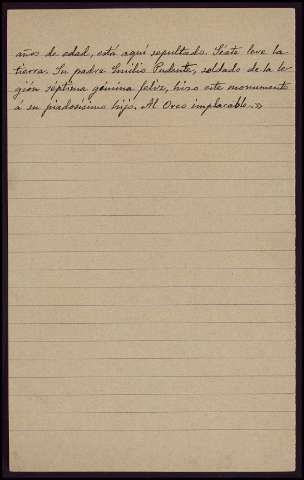 años de edad, está aquí sepultado. Séate leve la
tierra. Su padre Emilio Pudente, soldado de la le-
gión séptima gémina feliz, hizo este monumento
á su piadosísimo hijo. Al Orco implacable.»